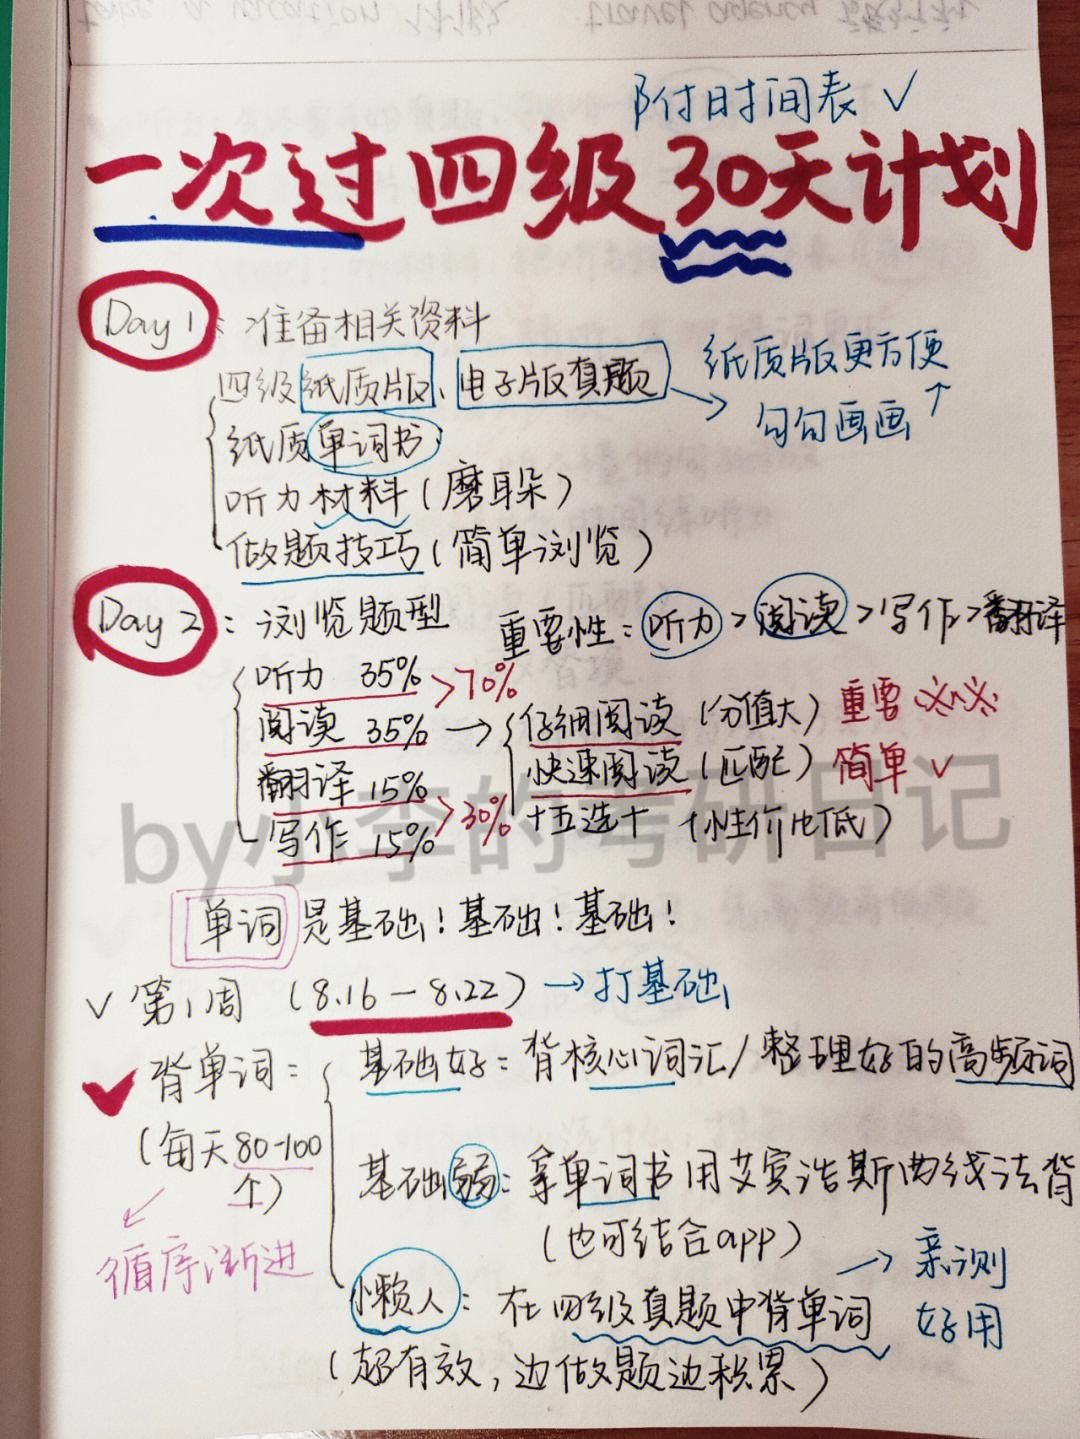 take a vacation 休假 travel agency 旅行社
附时间表 ✓
一次过四级30天计划
Day 1: 准备相关资料
四级纸质版、电子版真题 → 纸质版更方便
勾勾画画 ↑
纸质单词书
听力材料(磨耳朵)
做题技巧(简单浏览)
Day 2: 浏览题型 重要性:听力>阅读>写作>翻译
听力 35% >70%
阅读 35% → 仔细阅读 (分值大) 重要 ※※
翻译 15% 快速阅读 (匹配) 简单 ✓
写作 15% >30% 十五选十 (性价比低)
by小李的考研日记
单词是基础!基础!基础!
✓ 第1周 (8.16-8.22) → 打基础
✓ 背单词: 基础好:背核心词汇/整理好的高频词
(每天80-100
个) 基础弱:拿单词书用艾宾浩斯曲线法背
(也可结合app)
循序渐进
懒人:在四级真题中背单词 → 亲测
好用
(超有效,边做题边积累)